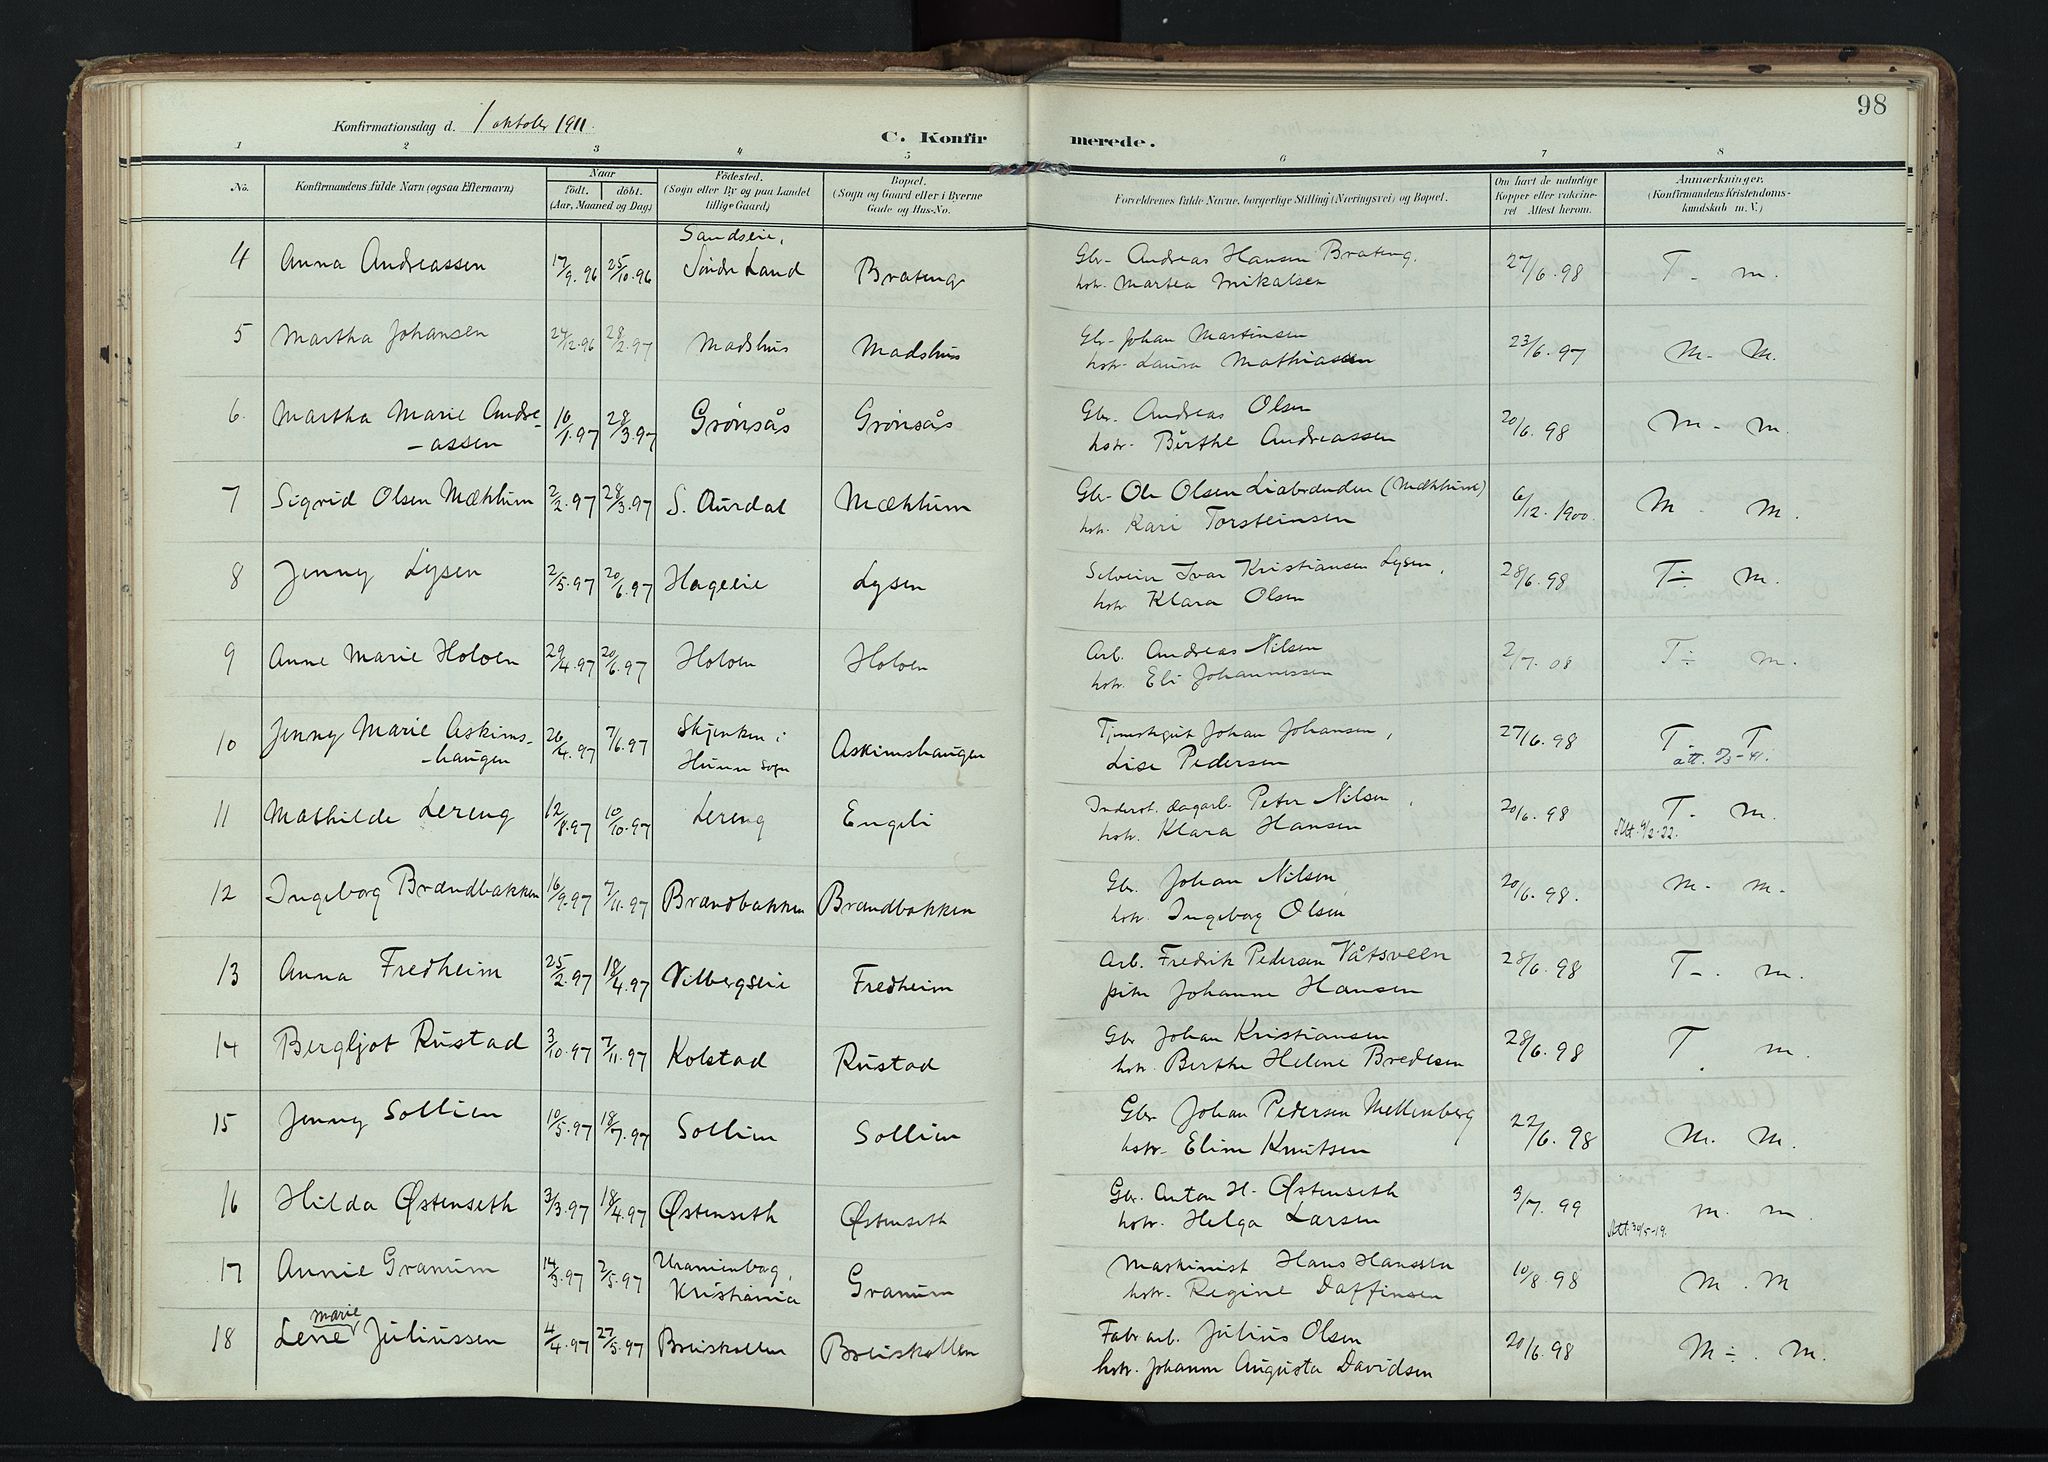 98
Konfirmationsdag d. 1 oktober 1911.
C. Konfirmerede.
1 2 3 4 5 6 7 8
No. Konfirmandens fulde Navn (ogsaa Efternavn) Naar Födested. Bopæl. Forældrenes fulde Navne, borgerlige Stilling (Næringsvei) og Bopæl. Om havt de naturlige Anmærkninger.
födt. döbt. (Sogn eller By og paa Landet (Sogn og Gaard eller i Byerne Kopper eller vakcine- (Konfirmandens Kristendoms-
(Aar, Maaned og Dag) tillige Gaard) Gade og Hus-No. ret Attest herom. kundskab m. V.)
4 Anna Andreassen 17/9.96 25/10.96 Sandseie, Søndre Land Brateng Gbr. Andreas Hansen Brateng. 27/6.98 T - M.
hstr. Martea Mikalsen
5 Martha Johansen 24/12.96 28/2.97 Madshus Madshus Gbr. Johan Martinsen 23/6.97 M - M.
hstr. Laura Mathiassen
6. Martha Marie Andre- 10/1.97 28/3.97 Grønsås Grønsås Gbr. Andreas Olsen 20/6.98 M - M.
-assen hstr. Birthe Andreassen
7 Sigrid Olsen Mæhlum 2/2.97 28/3.97 S. Aurdal Mæhlum Gbr. Ole Olsen Liabrænden (Mæhlum) 6/12.1900. M - M.
hstr. Kari Torsteinsen
8 Jenny Lysen 2/5.97 20/6.97 Hageeie Lysen Selveier Ivar Kristiansen Lysen, 28/6.98 T ÷ M.
hstr. Klara Olsen
9 Anne Marie Holoen 29/4.97 20/6.97 Holoen Holoen Arb. Andreas Nilsen 2/7.08 T ÷ M.
hstr. Eli Johannessen
10 Jenny Marie Askims- 26/4.97 7/6.97 Skjenken i Askimshaugen Tjenestegut Johan Johansen, 27/6.98 T - T
-haugen Hunn Sogn Lise Pedersen
11 Mathilde Lereng 12/8.97 10/10.97 Lereng Engeli Inderst. dagarb. Peter Nilsen, 20/6.98 T - M.
hstr. Klara Hansen Att. 9/2-22.
12 Ingeborg Brændbakken 16/9.97 7/11.97 Brændbakken Brændbakken Gbr. Johan Nilsen 20/6.98. M - M.
hstr. Ingeborg Olsen
13 Anna Fredheim 25/2.97 18/4.97 Vilbergseie Fredheim Arb. Fredrik Pedersen Våtsveen 28/6.98 T - M.
pike Johanne Hansen
14 Bergljot Rustad 3/10.97 7/11.97 Kolstad Rustad Gbr Johan Kristiansen 28/6.98 T. M.
hstr. Berthe Helene Bredesen
15 Jenny Sollien 10/5.97 18/7.97 Sollien Sollien Gbr Johan Pedersen Mellenberg 22/6.98 M. M.
hstr. Eline Knutsen
16 Hilda Østenseth 3/3.97 18/4.97 Østenseth Østenseth Gbr. Anton H. Østenseth 3/7.99 M. M.
hstr. Helga Larsen Att. 30/5-19.
17 Annie Granum 14/3.97 2/5.97 Uranienborg, Granum Maskinist Hans Hanssen 10/8.98 M. M
Kristiania hstr. Regine Daffinsen
marie
18 Lene Juliussen 4/4.97 27/5.97 Breiskallen Breiskallen Fabr.arb. Julius Olsen 20/6.98 M ÷. M.
hstr. Johanne Augusta Davidsen